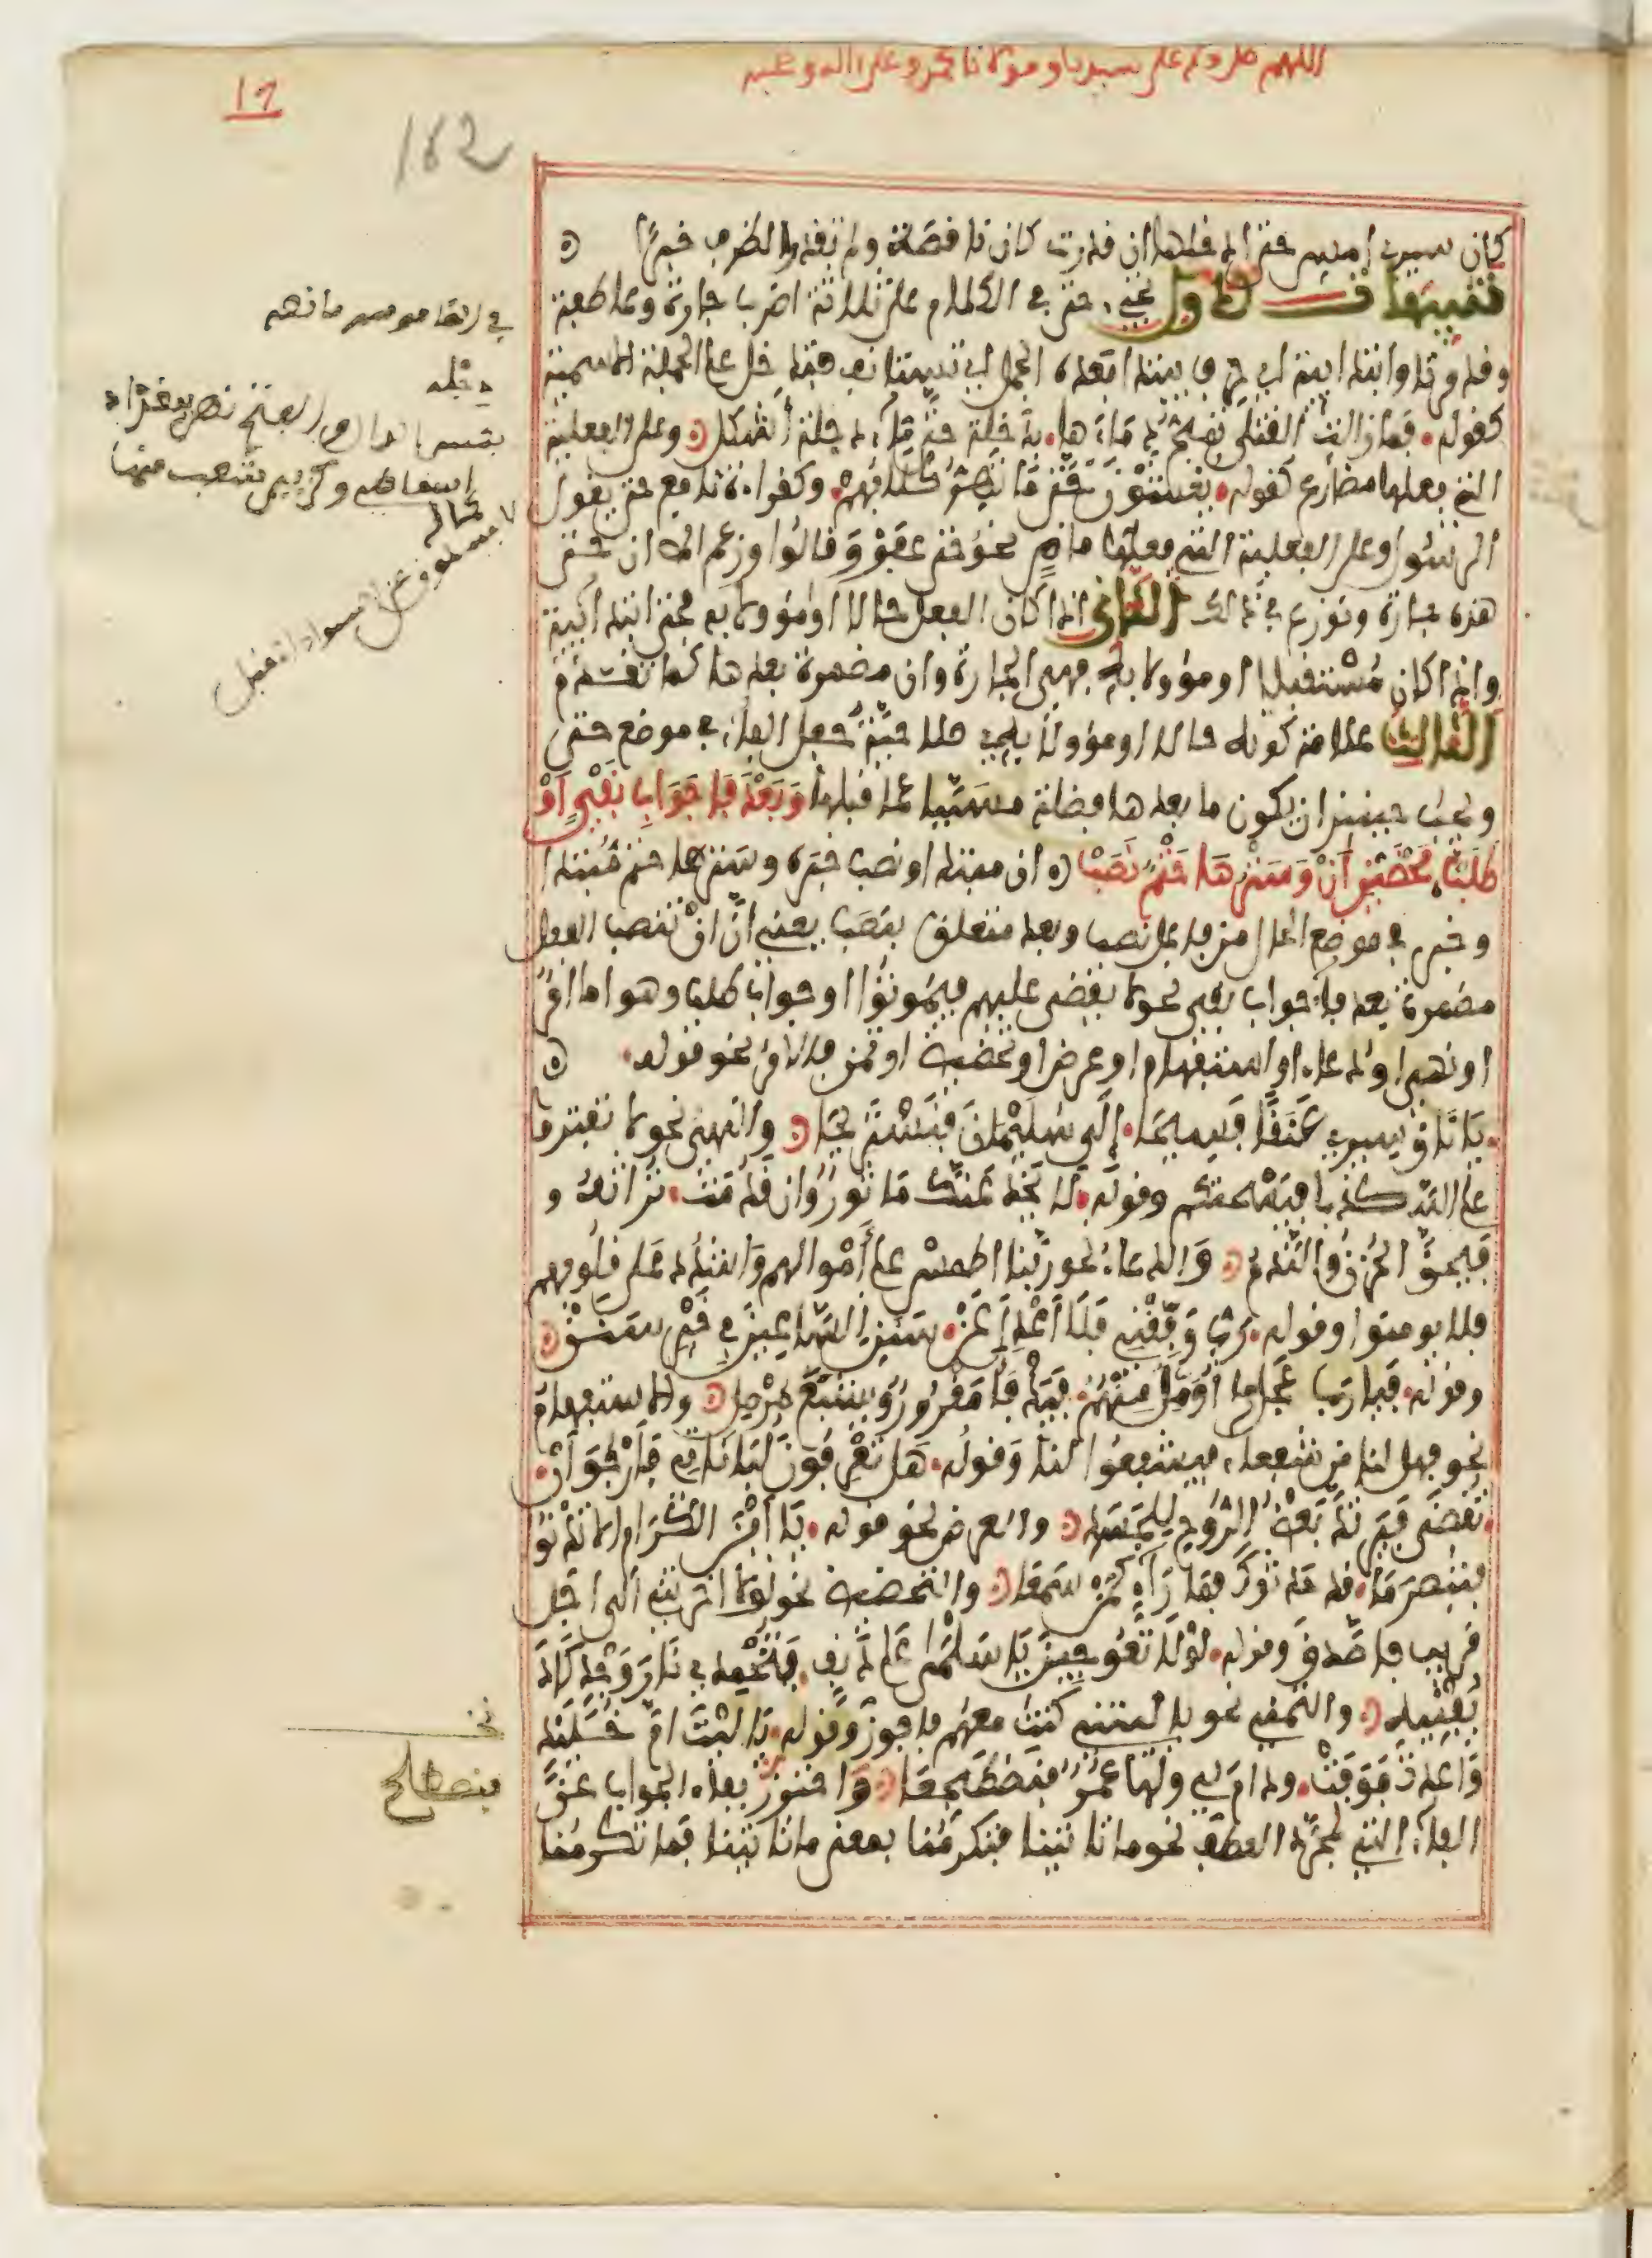 اللهم صل وسلم على سيدنا ومولانا محمد وعلى اله وصحبه
162
كان سيري امس حتى ادخلها ان قدرت كان ناقصة ولم تقدر الظرف خبرا
تنبيهات الاول تجيء حتى في الكلام على ثلاثة اضرب جارة وعاطفة
وقد مرتا وابتدائية اي حرف يبتدا بعده الجمل اي تستانف فتدخل على الجملة الاسمية
كقوله فما زالت القتلى تمج دماءها بدجلة حتى ماء دجلة اشكل وعلى الفعلية
التي فعلها مضارع كقوله يغشون حتى ما تهر كلابهم وكقراءة نافع حتى يقول
الرسول وعلى الفعلية التي فعلها ماض نحو حتى عفوا وقالوا وزعم المص ان حتى
هذه جارة ونوزع في ذلك الثاني اذا كان الفعل حالا او مؤولا به فحتى ابتدائية
واذا كان مستقبلا او مؤولا به فهي الجارة وان مضمرة بعدها كما تقدم
الثالث علامة كونه حالا او مؤولا به صلاحية جعل الفاء في موضع حتى
ويجب حينئذ ان يكون ما بعدها فضلة مسببا عما قبلها وبعد فا جواب نفي او
طلب محضين ان وسترها حتم نصب ان مبتدا ونصب خبره وسترها حتم مبتدا
وخبر في موضع الحال من فاعل نصب وبعد متعلق بنصب يعني ان ان تنصب الفعل
مضمرة بعد فاء جواب نفي نحو لا يقضى عليهم فيموتوا او جواب طلب وهو اما امر
او نهي او دعاء او استفهام او عرض او تحضيض او تمن فالامر نحو قوله
يا ناق سيري عنقا فسيحا الى سليمان فنستريحا والنهي نحو لا تفتروا
على الله كذبا فيسحتكم وقوله لا يخدعنك ماثور وان قدمت تراته
فيحق الحزن والندم والدعاء نحو ربنا اطمس على اموالهم واشدد على قلوبهم
فلا يومنوا وقوله رب وفقني فلا اعدل عن سنن الساعين في خير سنن
وقوله فيا رب عجل ما اؤمل منهم فيدفا مقرور ويشبع مرمل والاستفهام
نحو فهل لنا من شفعاء فيشفعوا لنا وقوله هل تعرفون لباناتي فارجو ان
تقضى فيرتد بعض الروح للجسد والعرض نحو قوله يا ابن الكرام الا تدنوا
فتبصر ما قد حدثوك فما راء كمن سمعا والتحضيض نحو لولا اخرتني الى اجل
قريب فاصدق وقوله لولا تعوجين يا سلمى على دنف فتخمدي نار وجد كاد
يفنيه والتمني نحو يا ليتني كنت معهم فافوز وقوله يا ليت ام خليد
واعدت فوفت ودام لي ولها عمر فنصطحبا واحترز بفاء الجواب عن
الفاء التي لمجرد العطف نحو ما تاتينا فتكرمنا بمعنى ما تاتينا فما تكرمنا